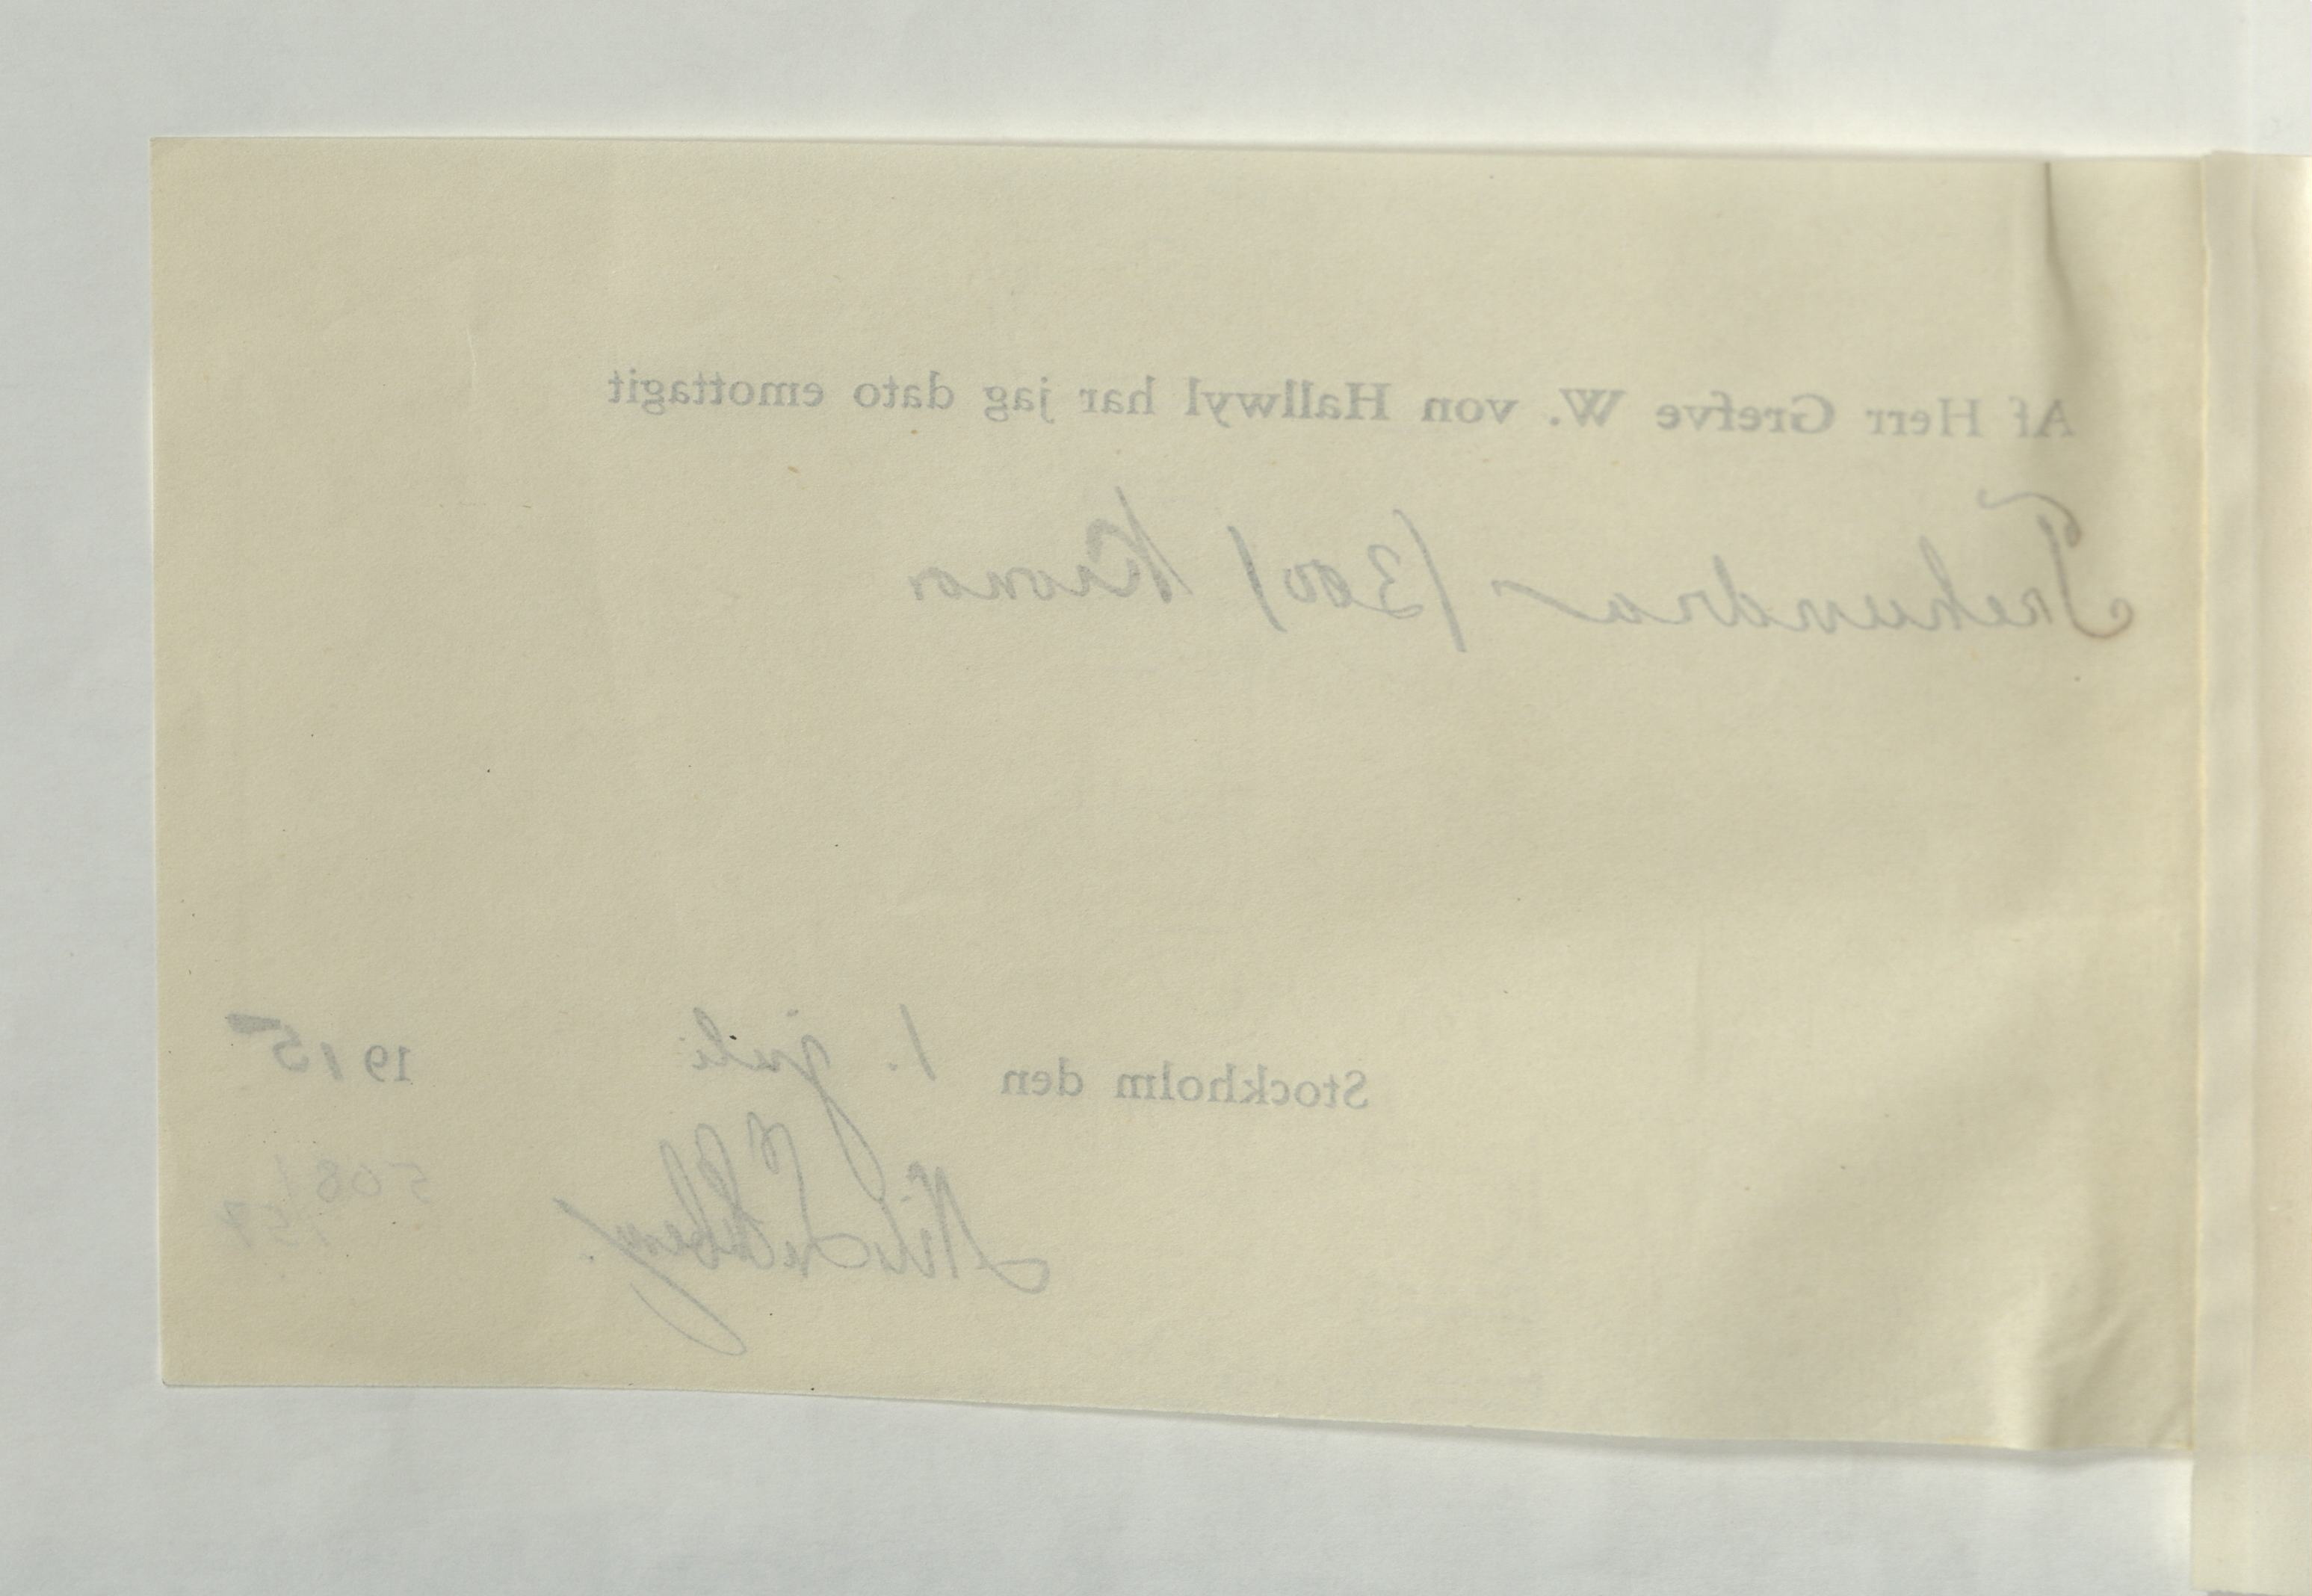 Af Herr Grefve W. von Hallwyl har jag dato emottagit
Trehundra (300) Kronor
Stockholm den 1. juli 1915
Nils
508/